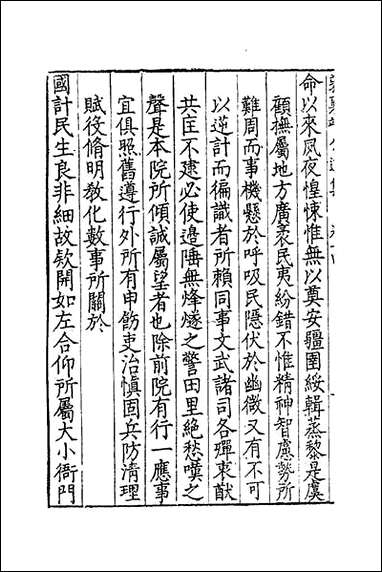 命以來夙夜惶悚惟無以奠安疆圉綏輯蒸黎是虞
顧撫屬地方廣袤民夷紛錯不惟精神智慮勢所
難周而事機懸於呼吸民隱伏於幽微又有不可
以逆計而徧識者所賴同事文武諸司各殫衷猷
共匡不逮必使邉陲無烽燧之警田里絶愁嘆之
聲是本院所傾誠屬望者也除前院有行一應事
宜俱照舊遵行外所有申飭吏治慎固兵防清理
賦役脩明敎化數事所關於
國計民生良非細故欵開如左合仰所屬大小衙門